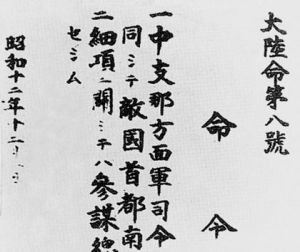 大陸命第八號
命令
一中支那方面軍司令
同シテ敵國首都南
二細項ニ關シテハ參謀總
セシム
昭和十二年十二